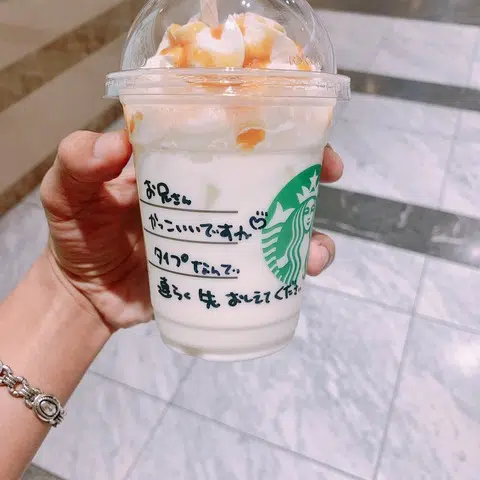 お兄さん
かっこいいですね
タイプなんで
連らく先 おしえてください